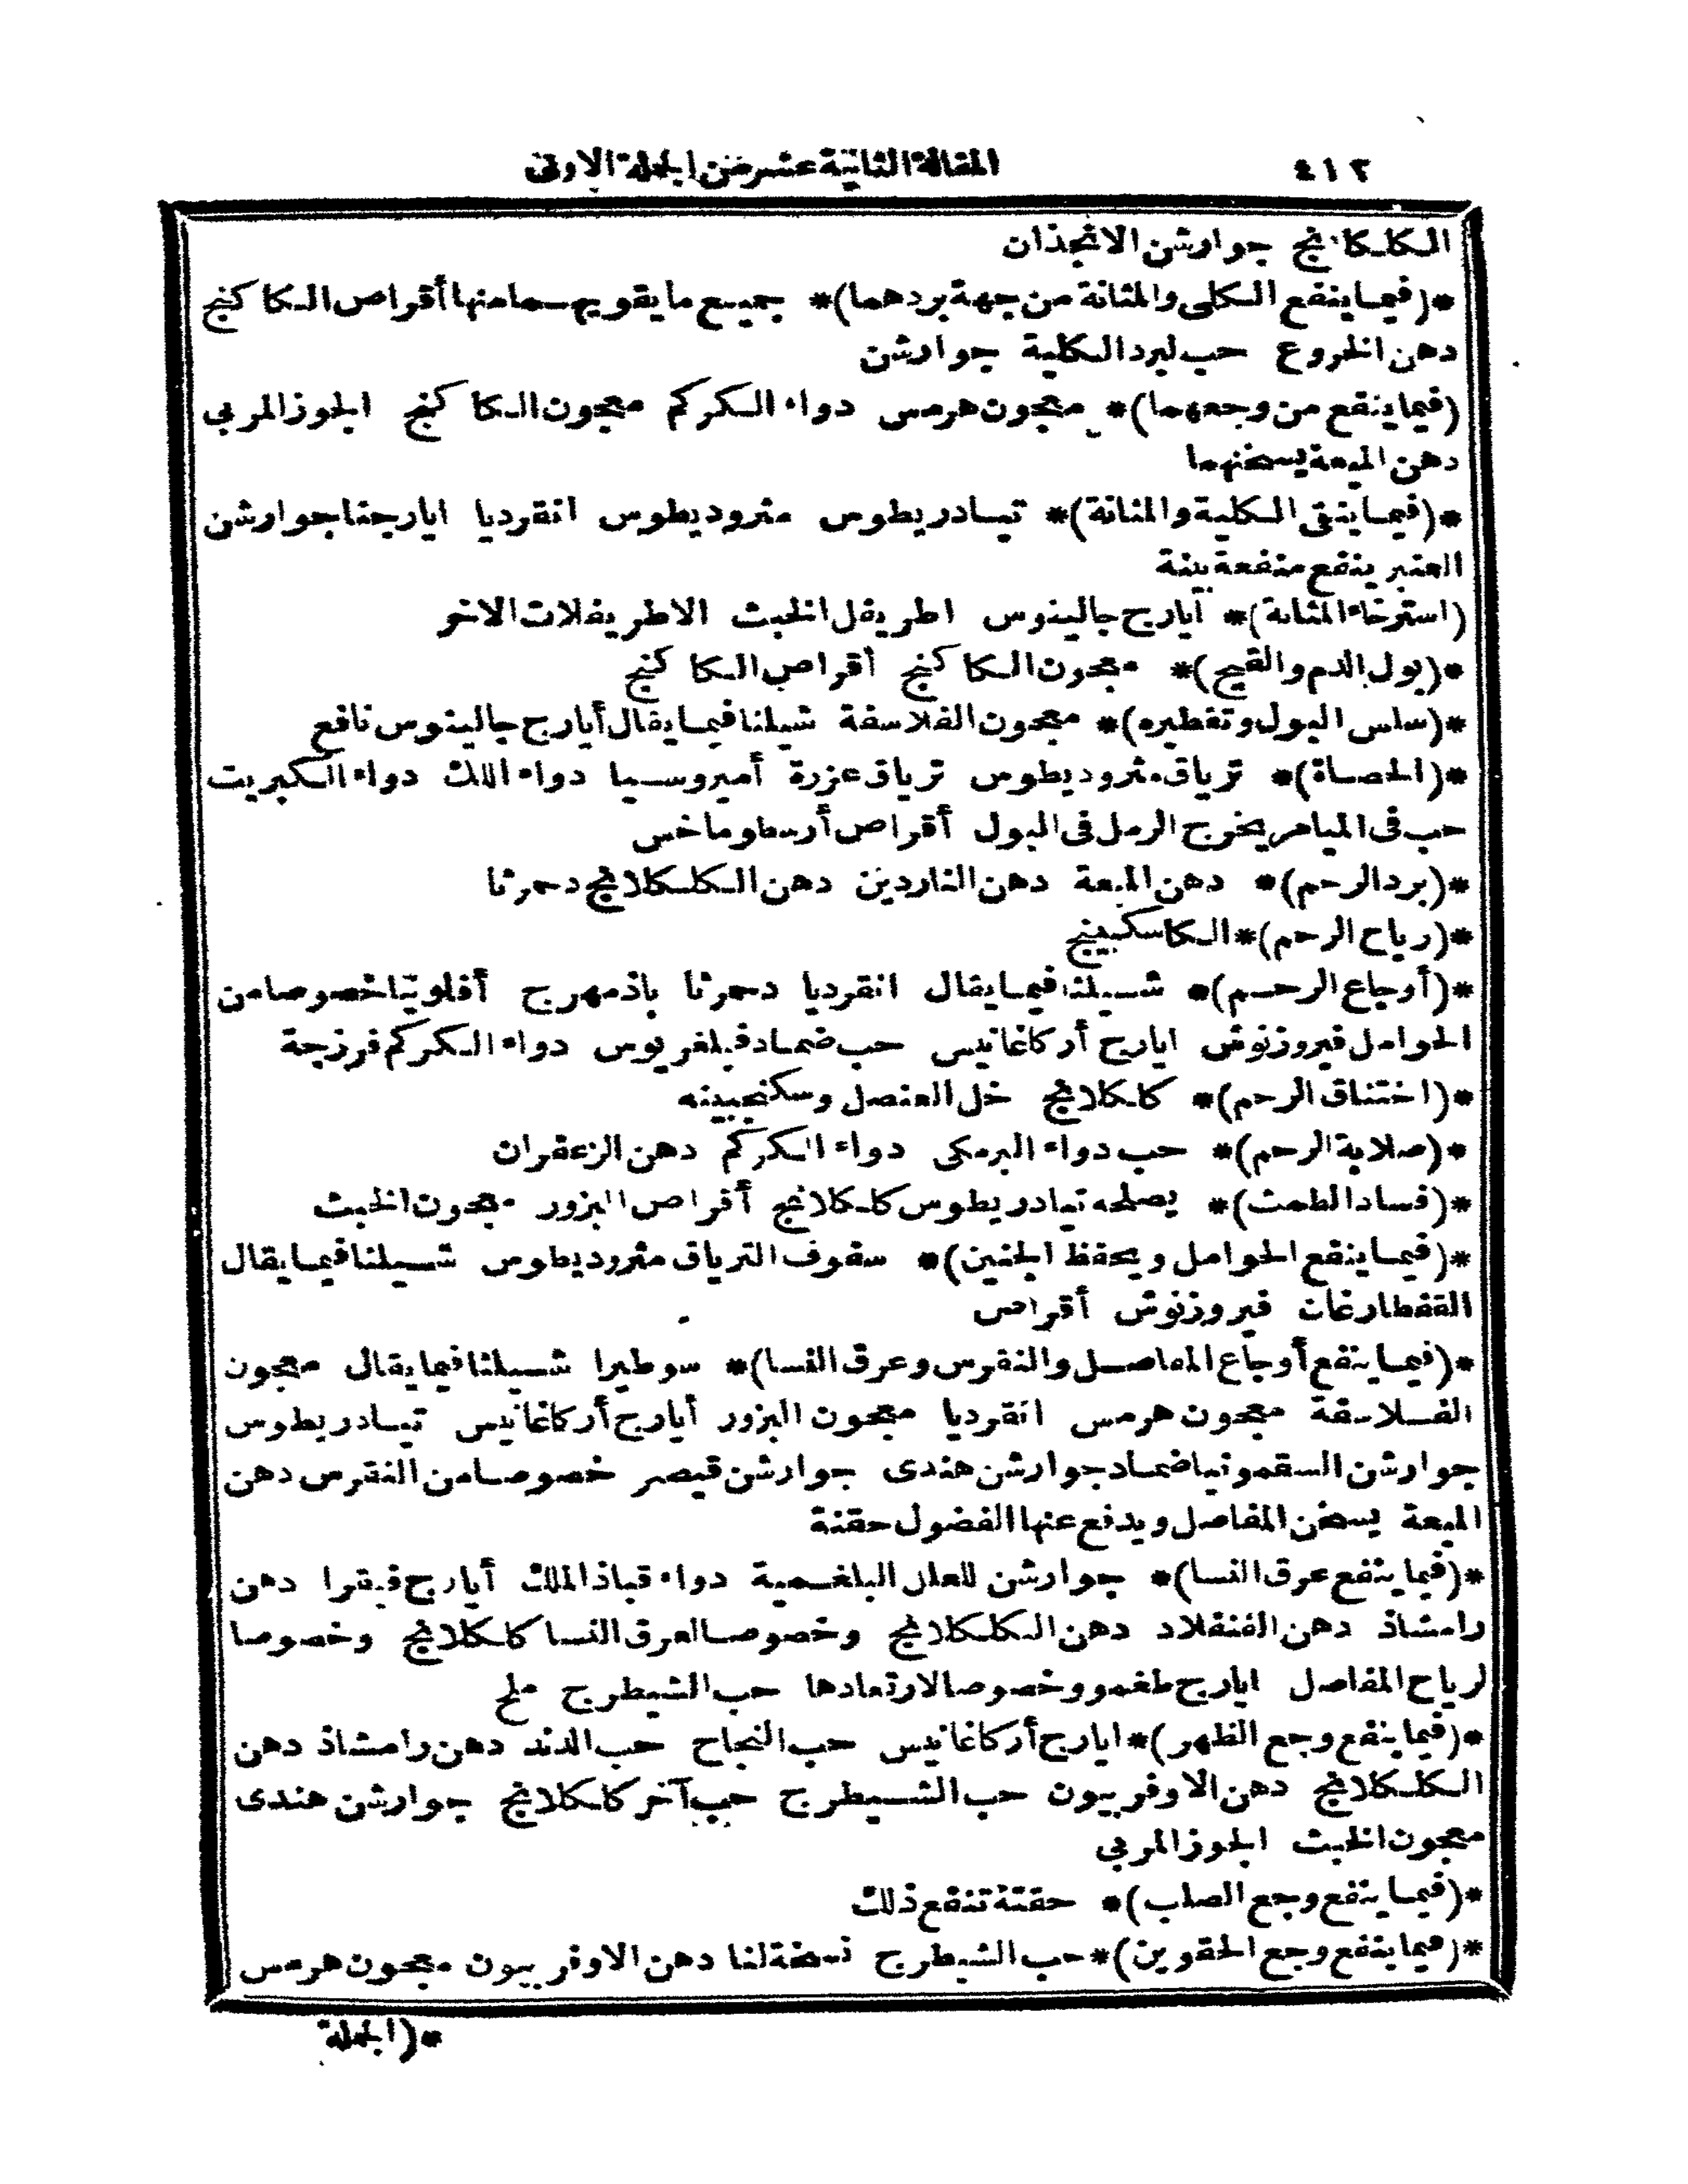 ٤١٢ المقالة الثانية عشر من الجملة الاولى
الكلكانج جوارشن الانجذان
*(فيما ينفع الكلى والمثانة من جهة بردهما)* جميع ما يقويهما منها أقراص الكاكنج
دهن الخروع حب لبرد الكلية جوارشن
(فيما ينفع من وجعهما)* معجون هرمس دواء الكركم معجون الكاكنج الجوز المربى
دهن الميعة يسخنهما
*(فيما ينقى الكلية والمثانة)* تيادريطوس مثروديطوس انقرديا ايارجنا جوارشن
العنبر ينفع منفعة بينة
(استرخاء المثانة)* أيارج جالينوس اطريفل الخبث الاطريفلات الاخر
*(بول الدم والقيح)* معجون الكاكنج أقراص الكاكنج
*(سلس البول وتقطيره)* معجون الفلاسفة شيلنا فيما يقال أيارج جالينوس نافع
*(الحصاة)* ترياق مثروديطوس ترياق عزرة أميروسيا دواء اللك دواء الكبريت
حب فى المياه يخرج الرمل فى البول أقراص أرسطوماخس
*(برد الرحم)* دهن الميعة دهن الناردين دهن الكلكلانج دحمرثا
*(رياح الرحم)* الكاسكبينج
*(أوجاع الرحم)* شيلنا فيما يقال انقرديا دحمرثا باذمهرج أفلونيا خصوصا من
الحوامل فيروزنوش ايارج أركاغانيس حب ضماد فيلغريوس دواء الكركم فرزجة
*(اختناق الرحم)* كلكلانج خل العنصل وسكنجبينه
*(صلابة الرحم)* حب دواء البرمكى دواء الكركم دهن الزعفران
*(فساد الطمث)* يصلحه تيادريطوس كلكلانج أقراص البزور معجون الخبث
*(فيما ينفع الحوامل ويحفظ الجنين)* سفوف الترياق مثروديطوس شيلنا فيما يقال
القفطارغان فيروزنوش أقراص
*(فيما ينفع أوجاع المفاصل والنقرس وعرق النسا)* سوطيرا شيلنا فيما يقال معجون
الفلاسفة معجون هرمس انقرديا معجون البزور أيارج أركاغانيس تيادريطوس
جوارشن السقمونيا ضماد جوارشن هندى جوارشن قيصر خصوصا من النقرس دهن
الميعة يسخن المفاصل ويدفع عنها الفضول حقنة
*(فيما ينفع عرق النسا)* جوارشن للعلل البلغمية دواء قباذ الملك أيارج فيقرا دهن
رامشاذ دهن القنقلاد دهن الكلكلانج وخصوصا لعرق النسا كلكلانج وخصوصا
لرياح المفاصل ايارج طغمو وخصوصا لارتعادها حب الشيطرج ملح
*(فيما ينفع وجع الظهر)* ايارج أركاغانيس حب النجاح حب الدند دهن رامشاذ دهن
الكلكلانج دهن الاوفربيون حب الشيطرج حب آخر كلكلانج جوارشن هندى
معجون الخبث الجوز المربى
*(فيما ينفع وجع الصلب)* حقنة تنفع ذلك
*(فيما ينفع وجع الحقوين)* حب الشيطرج نسخة لنا دهن الاوفربيون معجون هرمس
*(الجملة